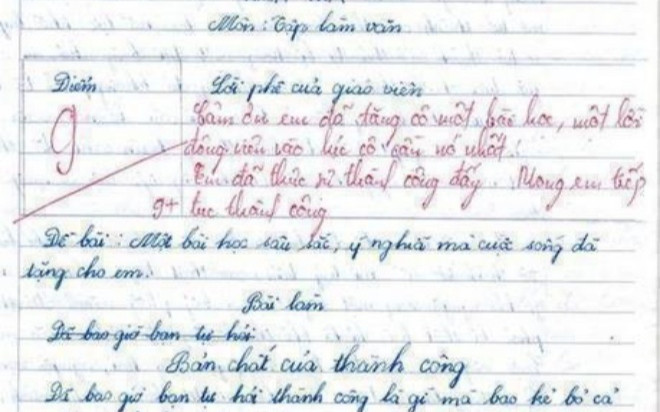 Môn: Tập làm văn
Điểm
Lời phê của giáo viên
9
Cảm ơn em đã tặng cô một bài học, một lời
động viên vào lúc cô cần nó nhất.
Em đã thực sự thành công đấy. Mong em tiếp
9+ tục thành công
Đề bài: Một bài học sâu sắc, ý nghĩa mà cuộc sống đã
tặng cho em.
Bài làm
Đã bao giờ bạn tự hỏi
Bản chất của thành công
Đã bao giờ bạn tự hỏi thành công là gì mà bao kẻ bỏ cả